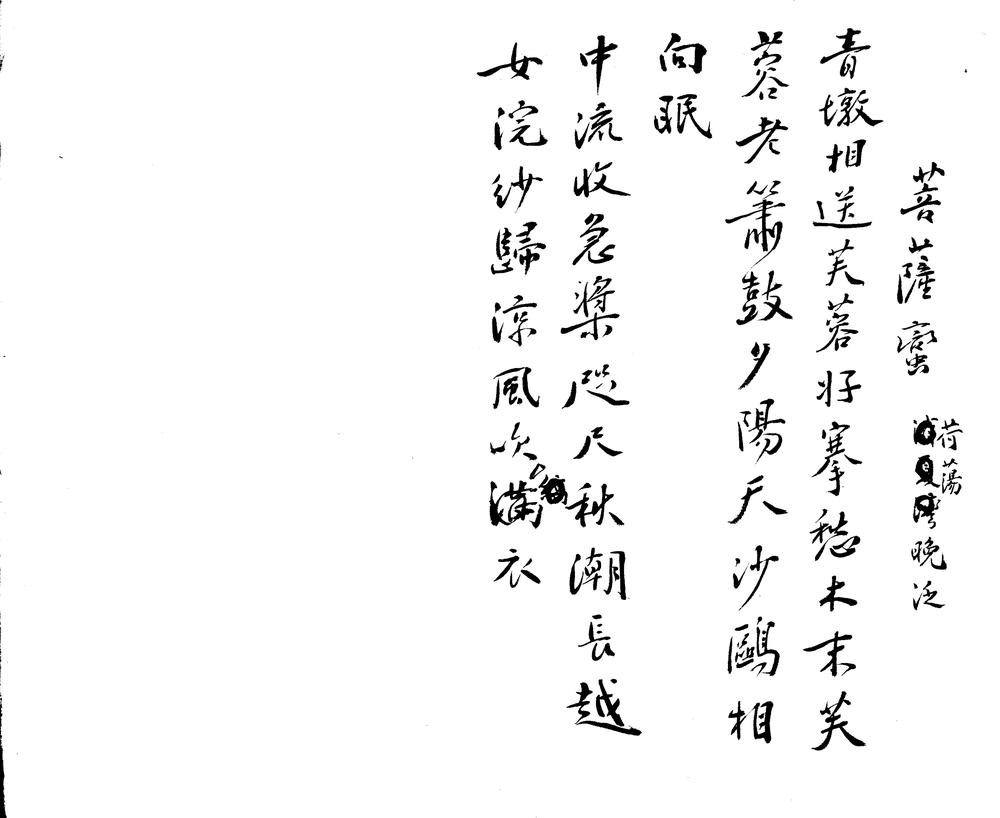 菩薩蠻 荷蕩晚泛
青墩相送芙蓉好搴愁木末芙
蓉老簫鼓夕陽天沙鷗相
向眠
中流收急槳咫尺秋潮長越
女浣紗歸涼風吹滿衣